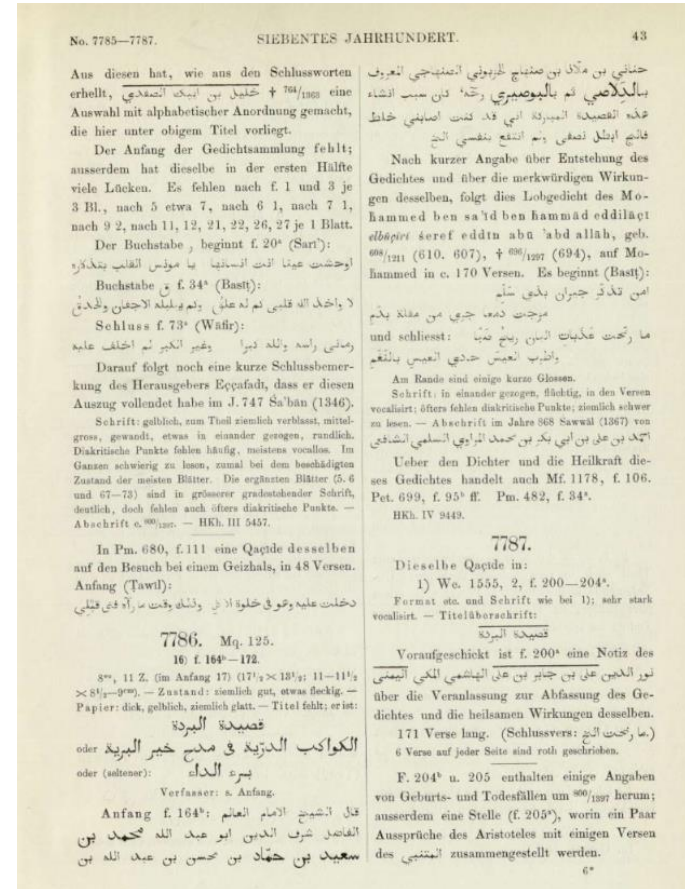 No. 7785—7787.
SIEBENTES JAHRHUNDERT.
43
Aus diesen hat, wie aus den Schlussworten
erhellt, خليل بن ايبك الصفدي † 764/1363 eine
Auswahl mit alphabetischer Anordnung gemacht,
die hier unter obigem Titel vorliegt.
Der Anfang der Gedichtsammlung fehlt;
ausserdem hat dieselbe in der ersten Hälfte
viele Lücken. Es fehlen nach f. 1 und 3 je
3 Bl., nach 5 etwa 7, nach 6 1, nach 7 1,
nach 9 2, nach 11, 12, 21, 22, 26, 27 je 1 Blatt.
Der Buchstabe ر beginnt f. 20ᵃ (Sarī'):
اوحشت عينا انت انسانها يا مونس القلب بتذكاره
Buchstabe ق f. 34ᵃ (Basīṭ):
Schluss f. 73ᵃ (Wāfir):
Darauf folgt noch eine kurze Schlussbemer-
kung des Herausgebers Eççafadī, dass er diesen
Auszug vollendet habe im J. 747 Śa'bān (1346).
Schrift: gelblich, zum Theil ziemlich verblasst, mittel-
gross, gewandt, etwas in einander gezogen, rundlich.
Diakritische Punkte fehlen häufig, meistens vocallos. Im
Ganzen schwierig zu lesen, zumal bei dem beschädigten
Zustand der meisten Blätter. Die ergänzten Blätter (5. 6
und 67—73) sind in grösserer gradestehender Schrift,
deutlich, doch fehlen auch öfters diakritische Punkte. —
Abschrift c. 800/1397. — HKh. III 5457.
In Pm. 680, f. 111 eine Qaçīde desselben
auf den Besuch bei einem Geizhals, in 48 Versen.
Anfang (Ṭawīl):
دخلت عليه وهو في خلوة
7786. Mq. 125.
16) f. 164ᵇ—172.
8ᵛᵒ, 11 Z. (im Anfang 17) (17½ × 13½; 11—11½
× 8½—9ᶜᵐ). — Zustand: ziemlich gut, etwas fleckig. —
Papier: dick, gelblich, ziemlich glatt. — Titel fehlt; er ist:
قصيدة البردة
oder الكواكب الدرّية في مدح خير البرية
oder (seltener): برء الداء
Verfasser: s. Anfang.
Anfang f. 164ᵇ: قال الشيخ الامام العالم
الفاضل شرف الدين ابو عبد الله محمد بن
سعيد بن حمّاد بن محسن بن عبد الله بن
حناني بن ملال بن صنهاج الصنهاجي المعروف
بالدلاصي ثم بالبوصيري رحّه كان سبب انشاء
هذه القصيدة المباركة اني قد كنت اصابني خلط
فالج ابطل نصفي ولم انتفع بنفسي الخ
Nach kurzer Angabe über Entstehung des
Gedichtes und über die merkwürdigen Wirkun-
gen desselben, folgt dies Lobgedicht des Mo-
ḥammed ben sa'īd ben ḥammād eddilāçī
elbūçīrī śeref eddīn abū 'abd allāh, geb.
608/1211 (610. 607), † 696/1297 (694), auf Mo-
ḥammed in c. 170 Versen. Es beginnt (Basīṭ):
امن تذكّر جيران بذي سلم
مزجت دمعا جرى من مقلة بدم
und schliesst: ما رنّحت عذبات البان ريح صبا
واطرب العيس حادي العيس بالنغم
Am Rande sind einige kurze Glossen.
Schrift: in einander gezogen, flüchtig, in den Versen
vocalisirt; öfters fehlen diakritische Punkte; ziemlich schwer
zu lesen. — Abschrift im Jahre 868 Śawwāl (1367) von
احمد بن علي بن ابي بكر بن محمد المراوي السلمي الشافعي
Ueber den Dichter und die Heilkraft die-
ses Gedichtes handelt auch Mf. 1178, f. 106.
Pet. 699, f. 95ᵇ ff. Pm. 482, f. 34ᵃ.
HKh. IV 9449.
7787.
Dieselbe Qaçīde in:
1) We. 1555, 2, f. 200—204ᵃ.
Format etc. und Schrift wie bei 1); sehr stark
vocalisirt. — Titelüberschrift:
قصيدة البردة
Voraufgeschickt ist f. 200ᵃ eine Notiz des
نور الدين علي بن جابر بن علي الهاشمي المكي اليمني
über die Veranlassung zur Abfassung des Ge-
dichtes und die heilsamen Wirkungen desselben.
171 Verse lang. (Schlussvers: ما رنحت الخ).
6 Verse auf jeder Seite sind roth geschrieben.
F. 204ᵇ u. 205 enthalten einige Angaben
von Geburts- und Todesfällen um 800/1397 herum;
ausserdem eine Stelle (f. 205ᵃ), worin ein Paar
Aussprüche des Aristoteles mit einigen Versen
des المتنبي zusammengestellt werden.
6*